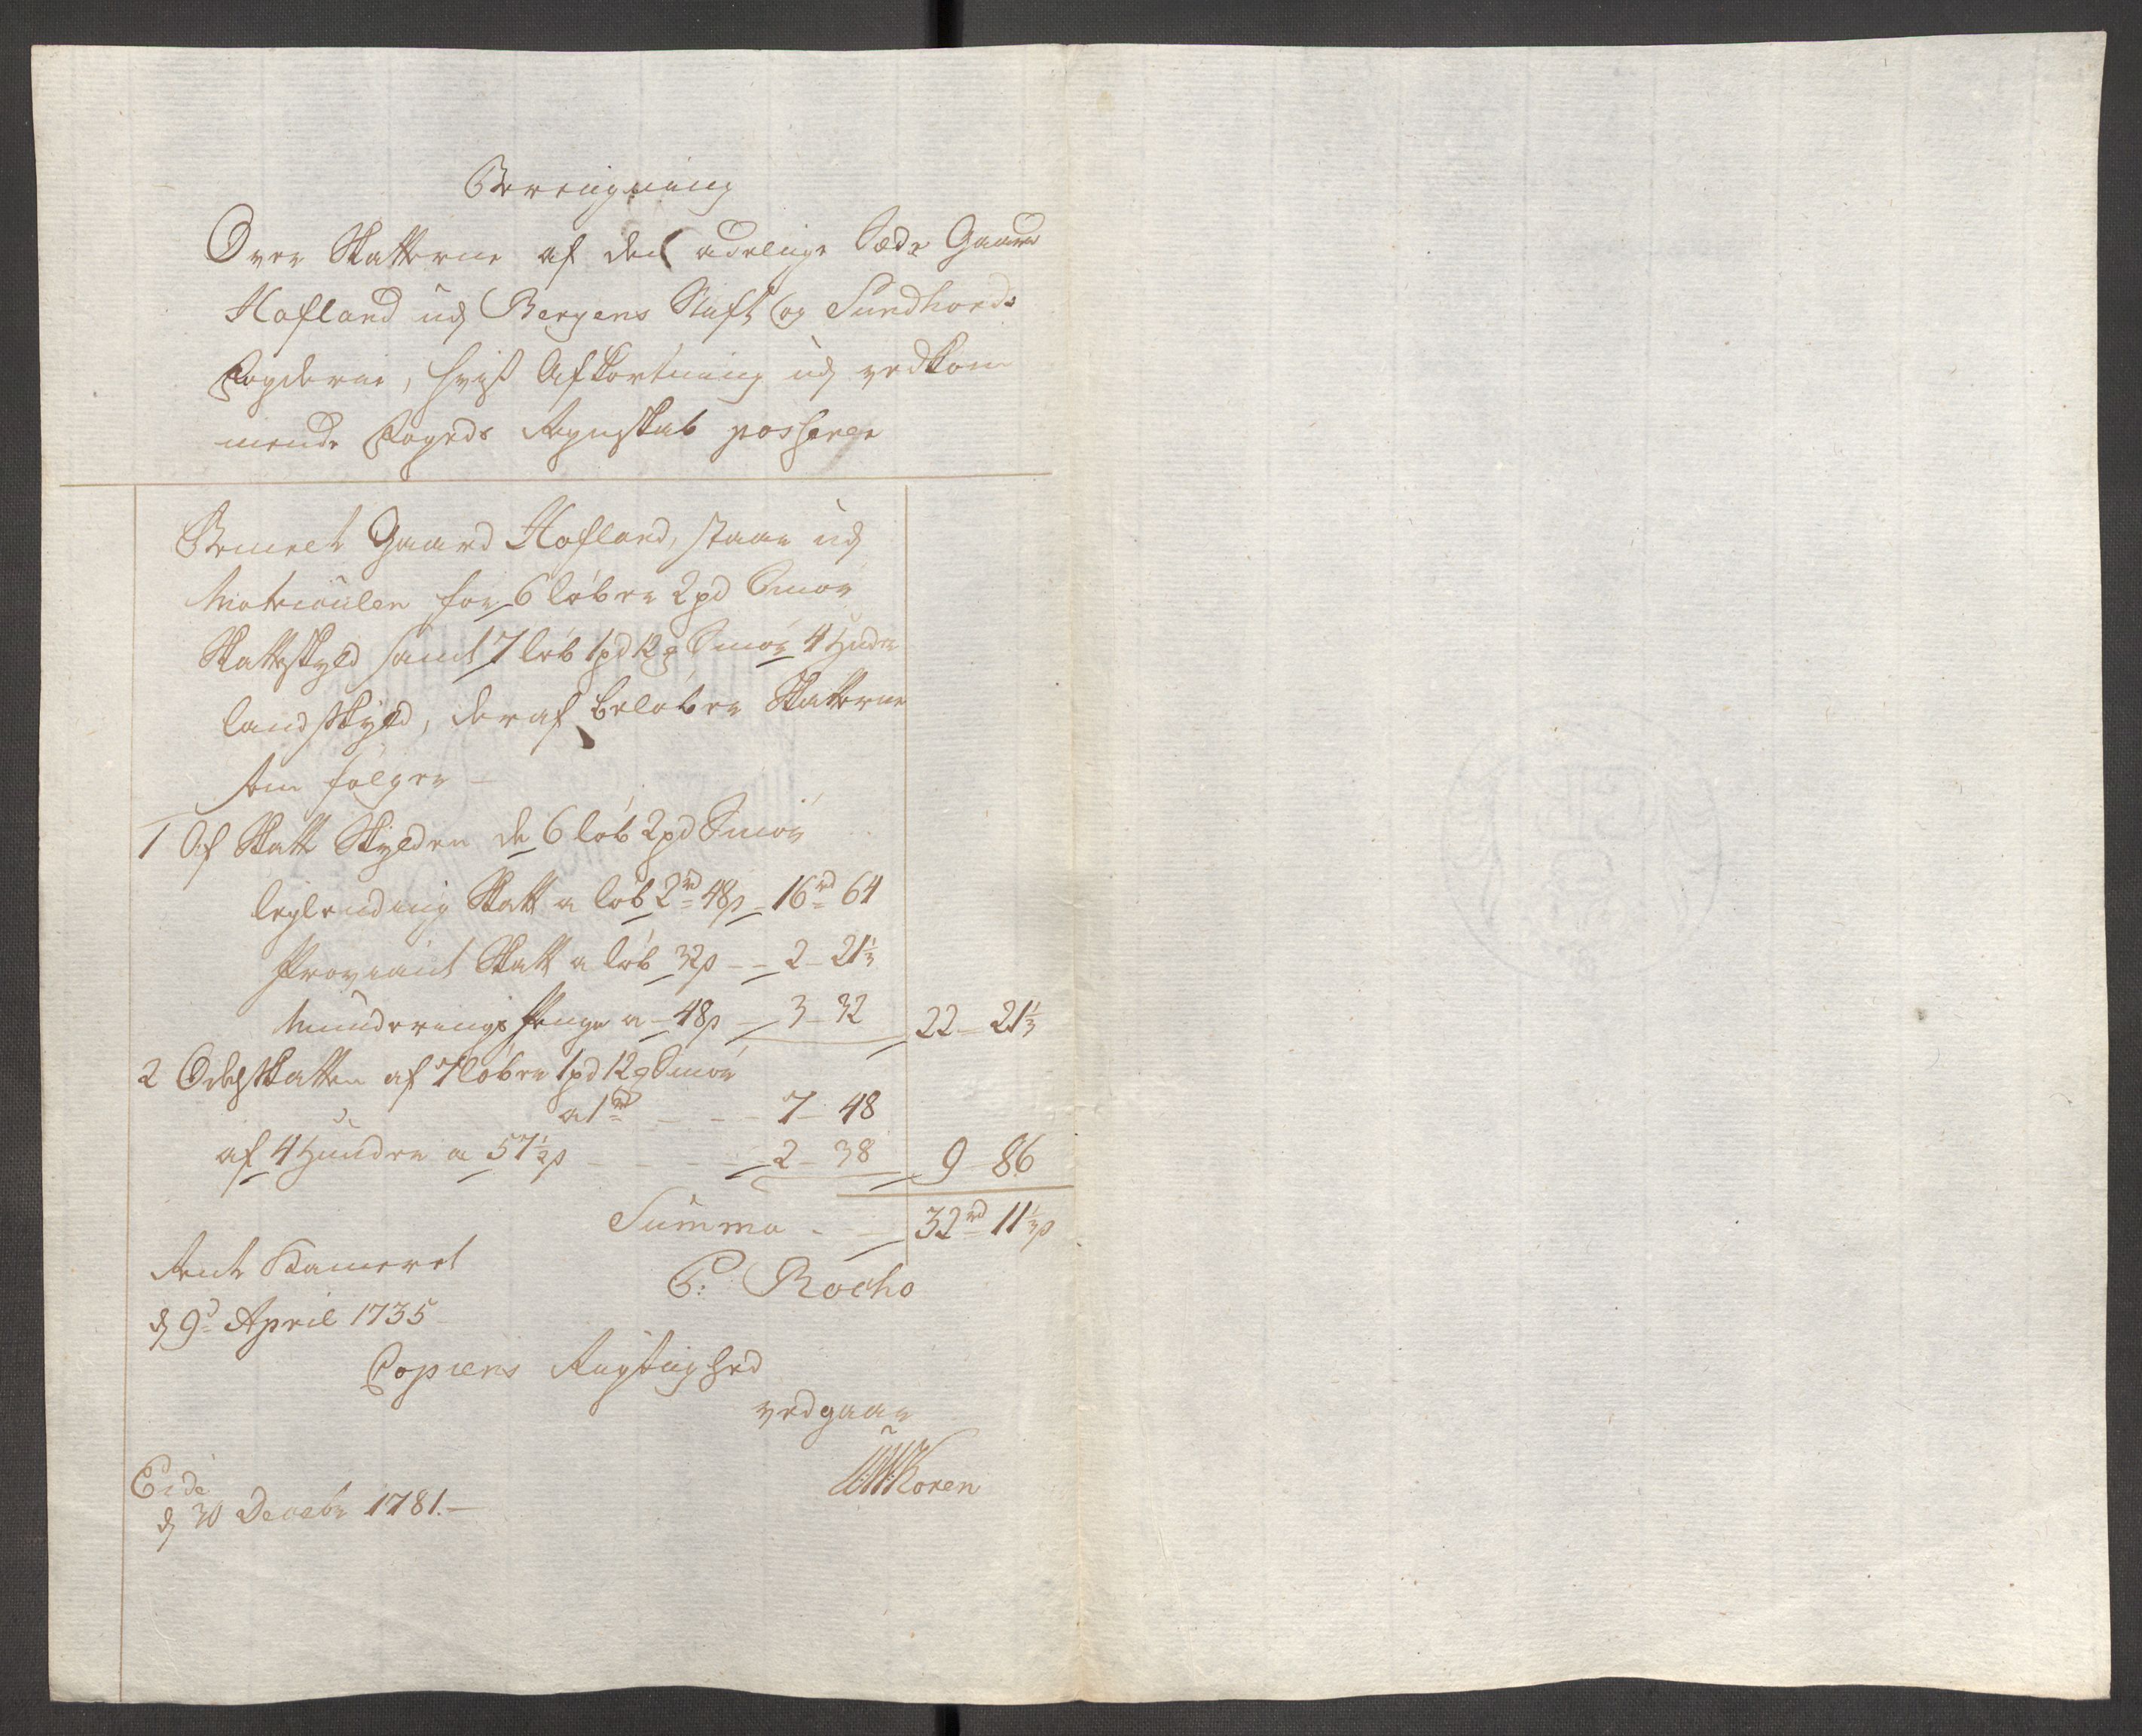 Beregning
Over Skatterne af den adelige Sæde Gaard
Hafland udj Bergens Stift og Sundhords
Fogderie, hvis Afkortning udj vedkom
mende Fogeds Regnskab passerer
Bemelt Gaard Hafland, staar udj
Matriculen for 6 løber 2 pd Smør
Skatteskyld samt 7 løb 1 pd 12 Smør 4 Huder
landskyld, deraf beløber Skatterne
som følger
1 Af Skatte Skylden de 6 løb 2 pd Smør
leglending Skatt a løb 2 rd 48 s 16 rd 64
Proviant Skatt a løb 32 s 2 21 1/3
Munderings Penge a 48 s 3 32 22 21 1/3
2 Odelskatten af 7 løber 1 pd 12 Smør
a 1 rd 7 48
af 4 Hunder a 57 1/2 s 2 38 9 86
Summa 32 rd 11 1/3 s
Rente Kameret
d 9d April 1735
Copiens Rigtighed
vedgaar
Koren
Eide
d 30 Decebr 1781.